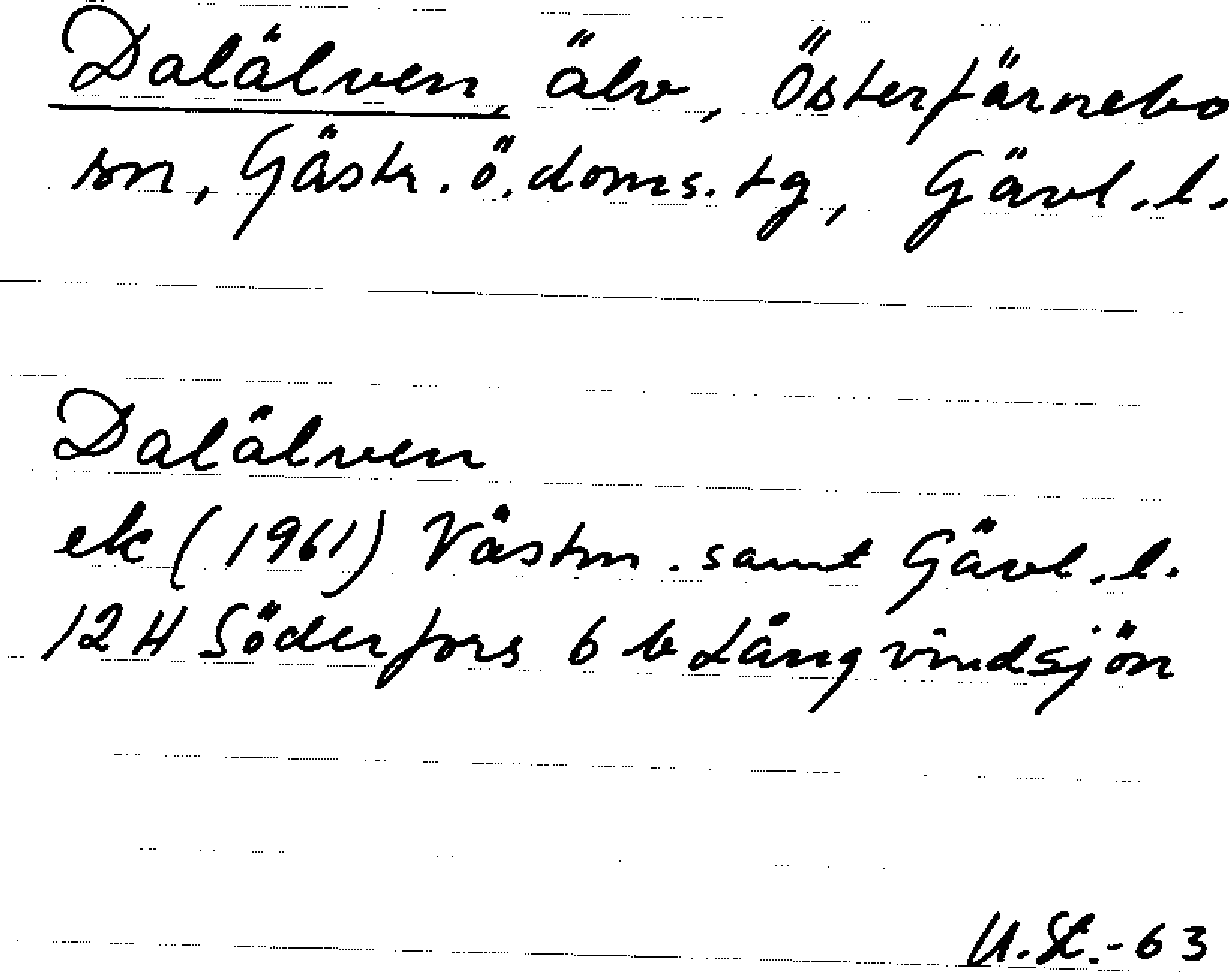 Dalälven, älv, Österfärnebo
sn, Gästr. ö. doms. tg, Gävl. l.
Dalälven
ek (1961) Västm. samt Gävl. l.
12 H Söderfors 6 b Långvindsjön
U.St.-63